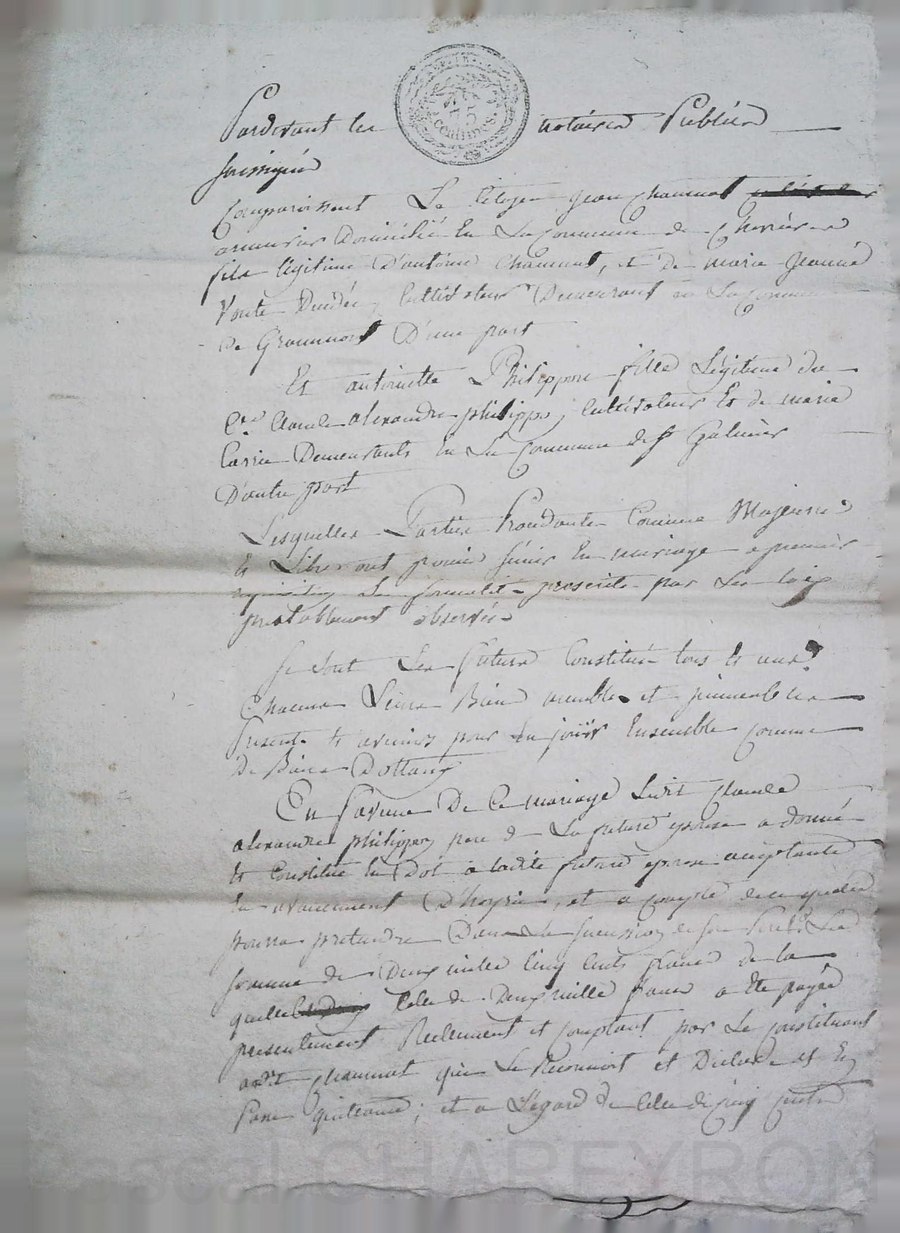 75
centimes
Pardevant les notaires Publics
soussignés
Comparaissent Le Citoyen jean Chaumat
armurier domicilié En La Commune de
fils légitime D'antoine Chaumat, et de marie jeanne
cultivateur Demeurant en La Commune
de Grammont D'une part
Et antoinette Philippon fille Légitime du
Cen Claude alexandre philippon, cultivateur Et de marie
Demeurants en La Commune de St Galmier
D'autre part
Lesquelles Parties Procedante Comme Majeures
et Libres ont promis s'unir En mariage a premiere
requisition Les formalités prescrites par Les loix
prealablement observées
Se sont Les futurs Constitués tous Et uns
Chacuns Leurs Biens meubles et immeubles
Presents Et avenirs pour En jouir Ensemble comme
De Biens Dottaux
En faveur De Ce mariage Ledit Claude
alexandre philippon pere de La future Epouse a donné
Et Constitué En Dot a ladite future Epouse acceptante
En avancement D'hoyrie, et a compte de ce qu'elle
pourra pretendre Dans La succession de son Pere La
somme de Deux mille Cinq Cents francs de la
quelle Celle de Deux mille francs a Eté payée
presentement Reelement et comptant par Le constituant
audit Chaumat qui Le Reconnoit et Declare et En
Passe quittance; et a L'egard de Celle de cinq Cents
Pascal CHAPEYRON